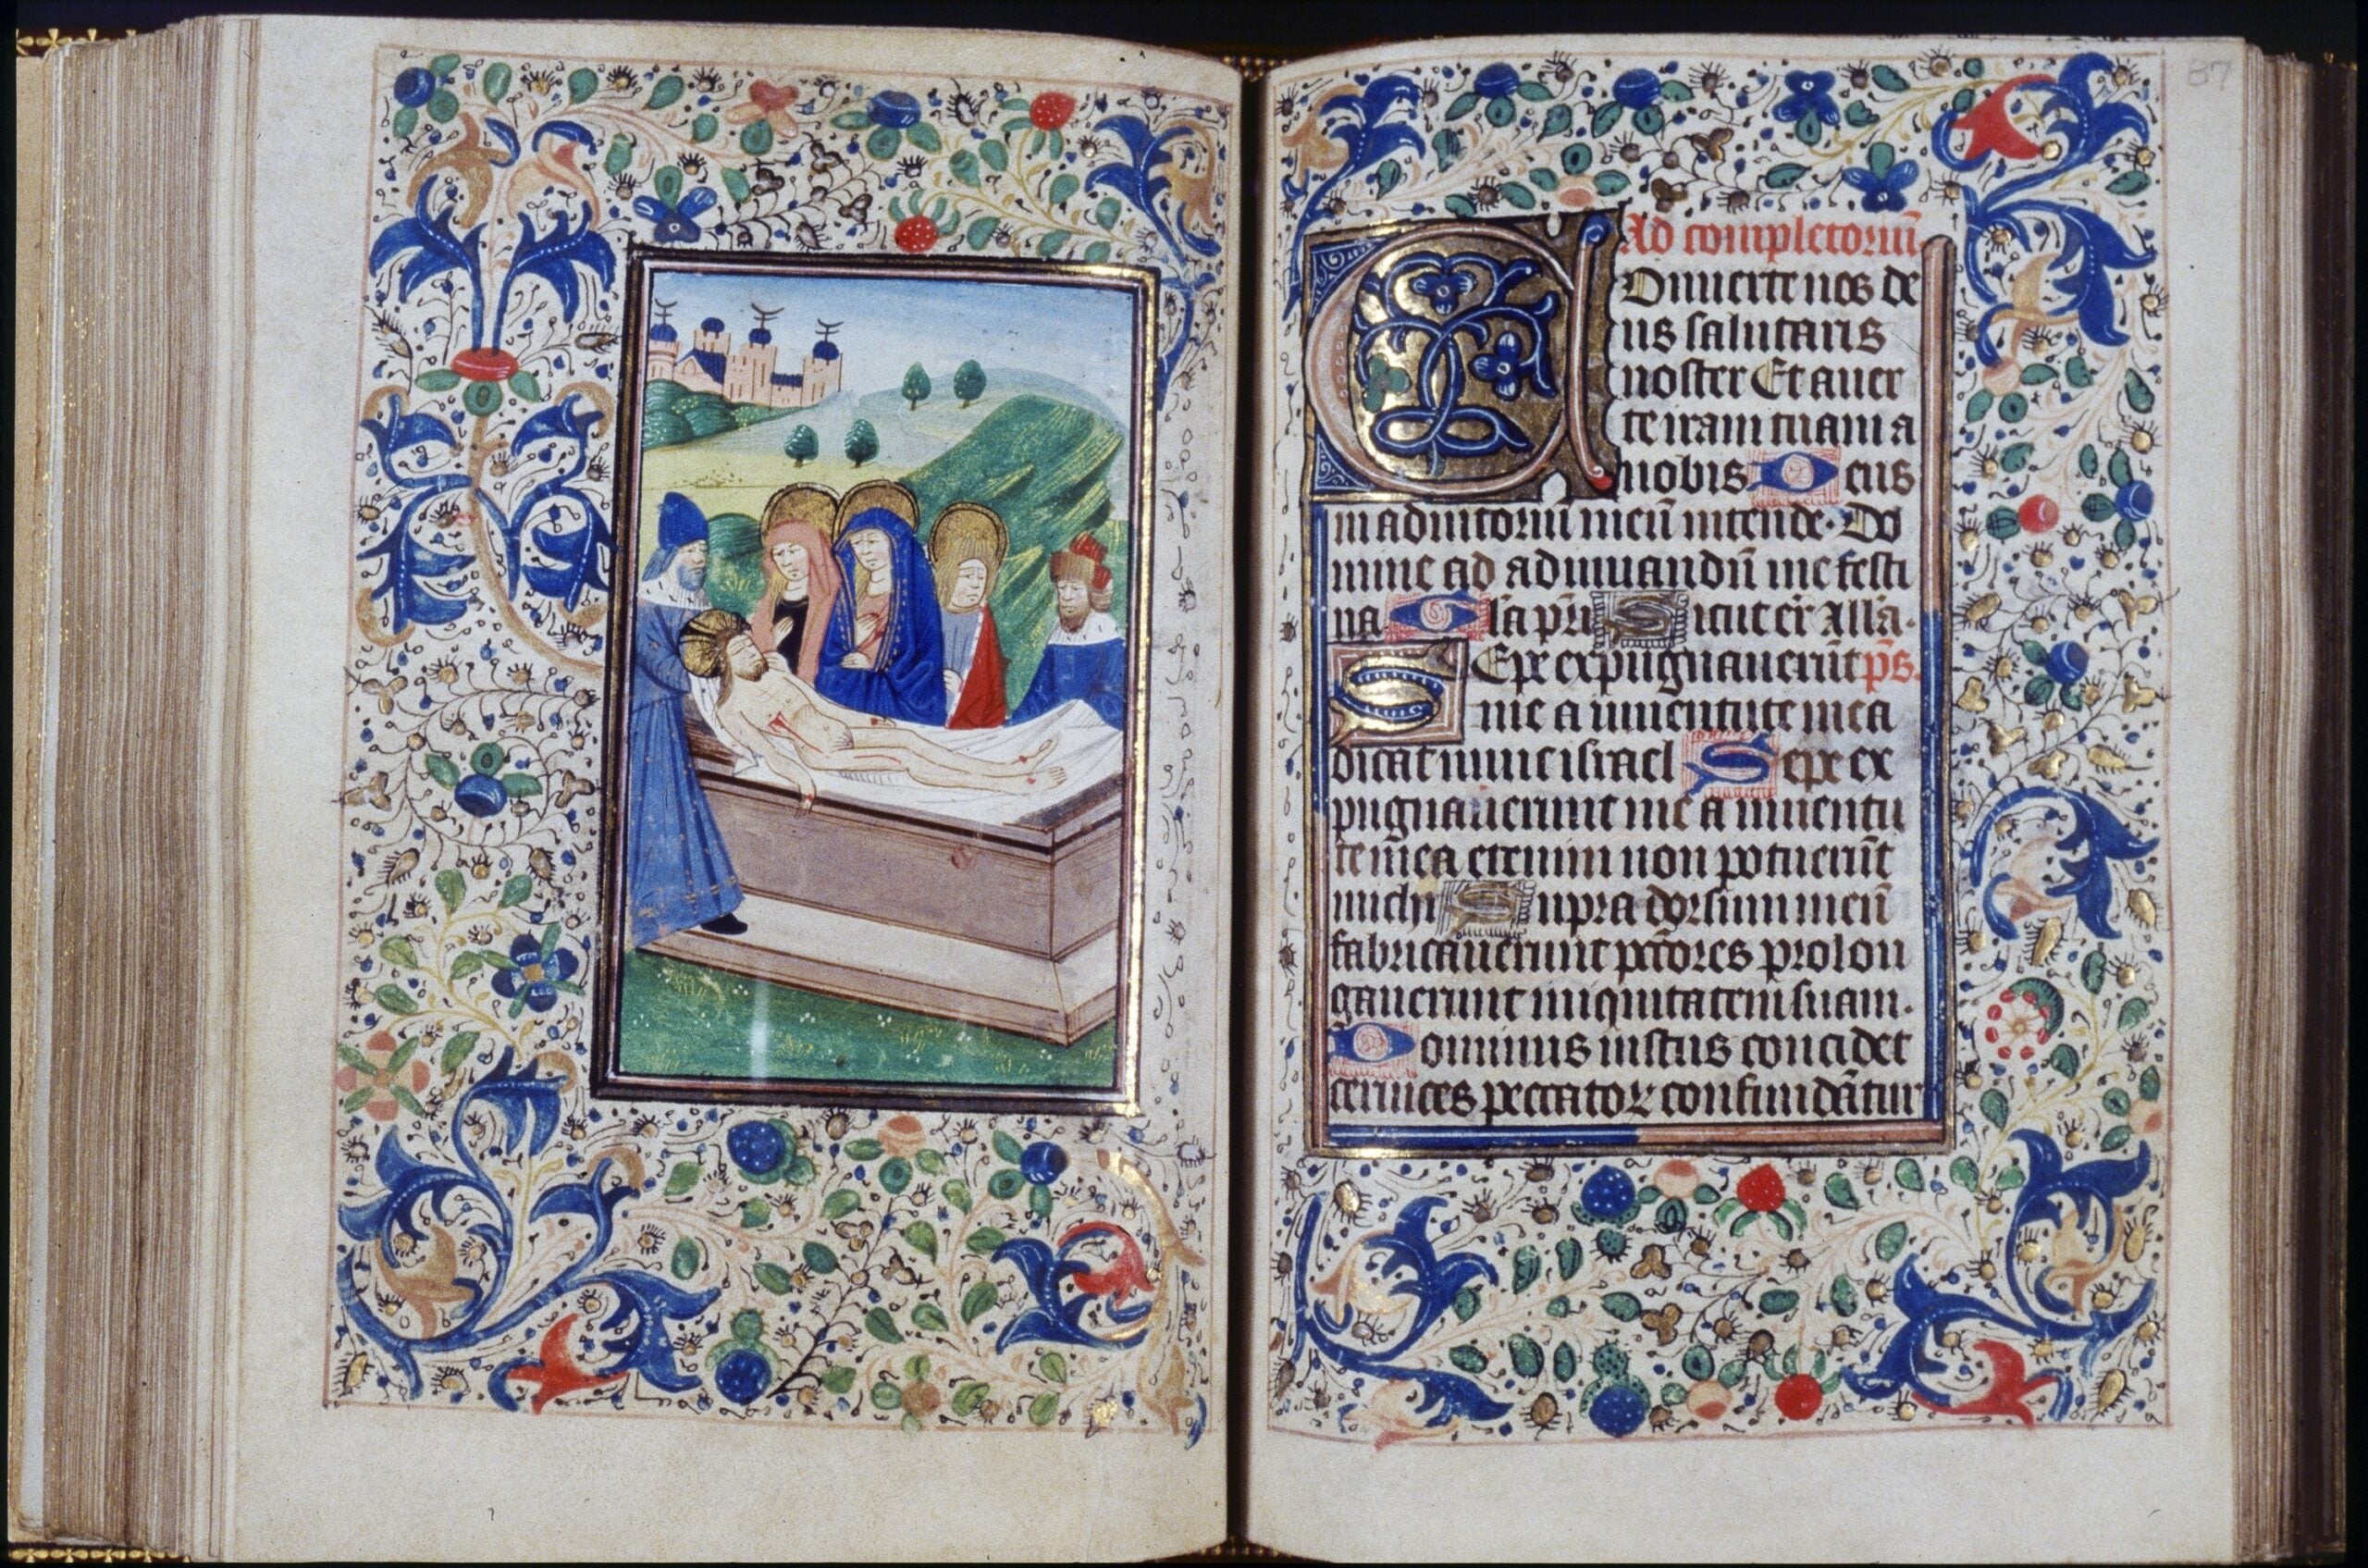 87
Ad completoriū.
Conuerte nos de
us salutaris
noster Et auer
te iram tuam a
nobis Deus
in adiutoriū meū intende. Do
mine ad adiuuandū me festi
na. Gl̄a pr̄i Sicut er̄ All̄a.
Sepe expugnauerūt pŝ.
me a iuuentute mea
dicat nunc israel Sepe ex
pugnauerunt me a iuuentu
te mea etenim non potuerūt
michi Supra dorsum meū
fabricauerunt pctōres prolon
gauerunt iniquitatem suam.
Dominus iustus concidet
ceruices peccatoꝝ confundātur